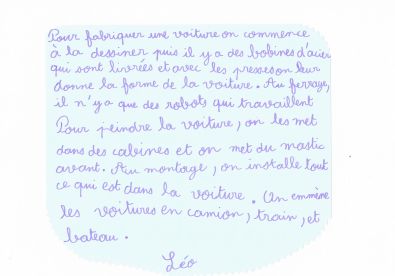 Pour fabriquer une voiture on commence
à la dessiner puis il y a des bobines d'acier
qui sont livrées et avec les presses on leur
donne la forme de la voiture. Au ferrage,
il n'y a que des robots qui travaillent
Pour peindre la voiture, on les met
dans des cabines et on met du mastic
avant. Au montage, on installe tout
ce qui est dans la voiture. On emmène
les voitures en camion, train, et
bateau.
Léo